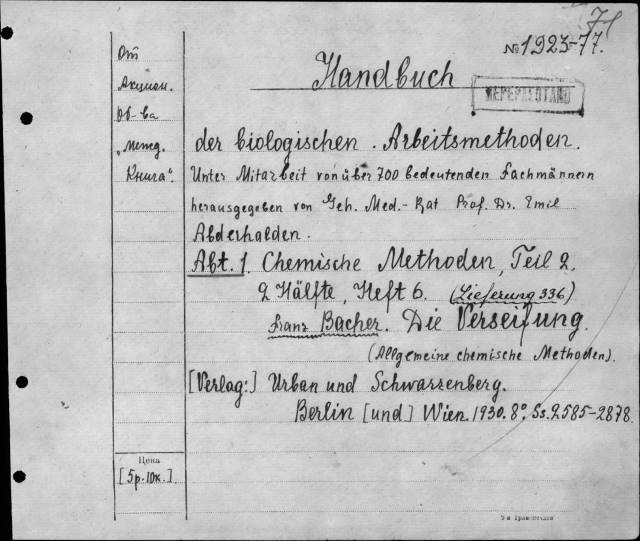 71
№ 1923-77.
От
Акцион.
Об-ва
„Межд.
Книга“.
Handbuch
der biologischen Arbeitsmethoden.
Unter Mitarbeit von über 700 bedeutenden Fachmännern
herausgegeben von Geh. Med.-Rat Prof. Dr. Emil
Abderhalden.
Abt. 1. Chemische Methoden, Teil 2.
2 Hälfte, Heft 6. (Lieferung 336)
Franz Bacher. Die Verseifung.
(Allgemeine chemische Methoden).
[Verlag:] Urban und Schwarzenberg.
Berlin [und] Wien. 1930. 8°. Ss. 2585-2878.
Цена
[5р.10к.].